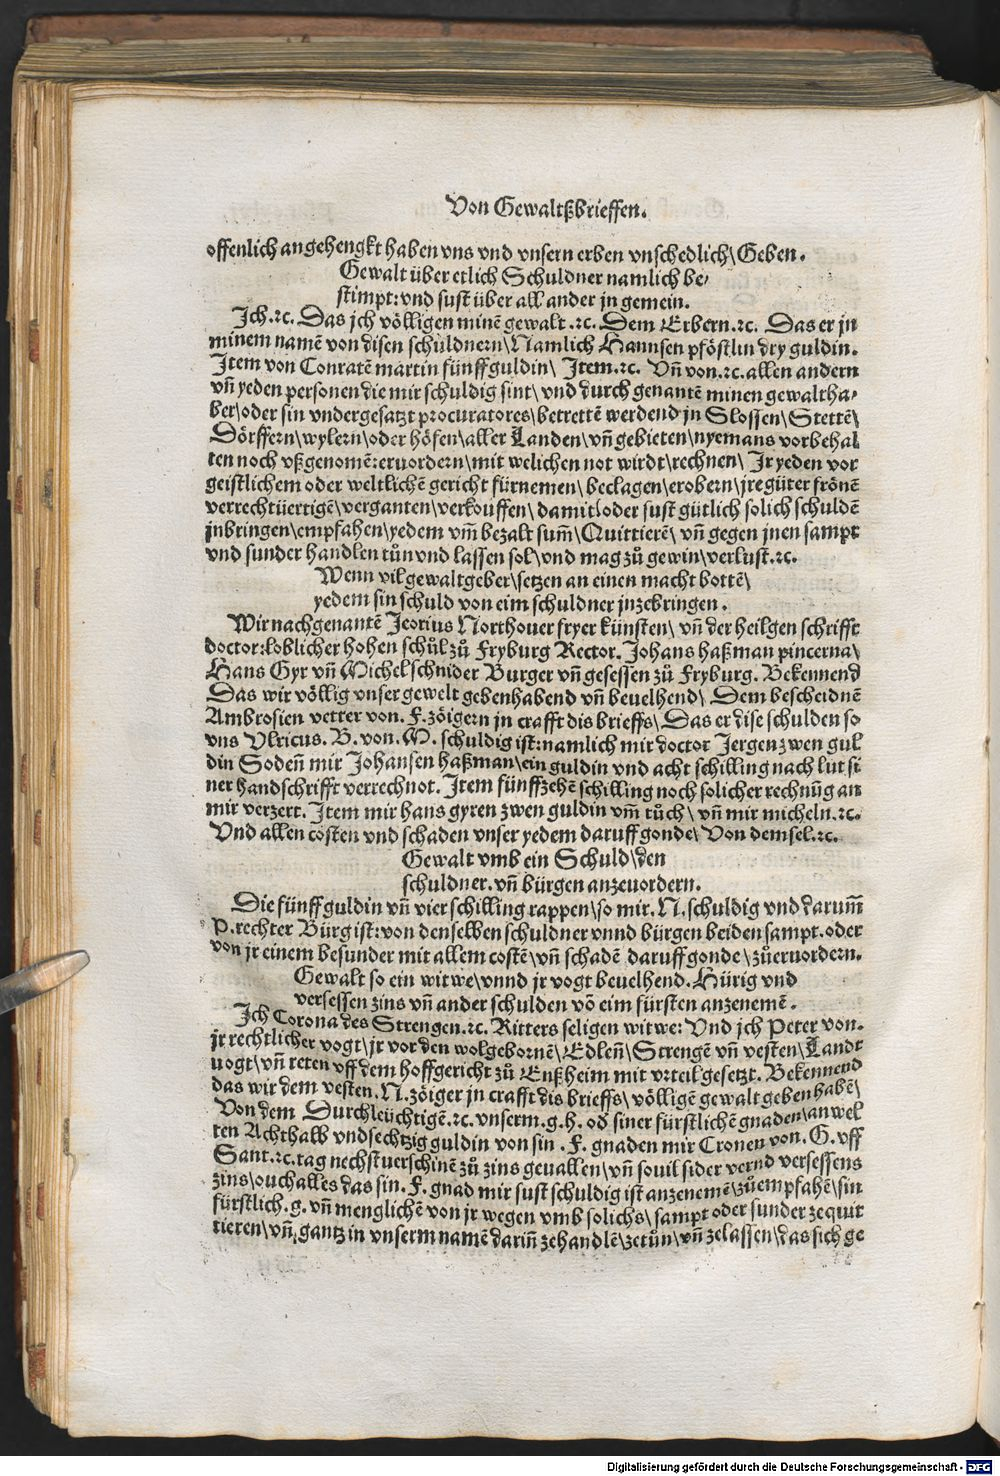 Von Gewaltßbrieffen.
offenlich angehengkt haben vns vnd vnsern erben vnschedlich\ Geben.
Gewalt über etlich Schuldner namlich be⸗
stimpt: vnd sust über all ander jn gemein.
Jch.ꝛc. Das jch völligen minē gewalt.ꝛc. Dem Erbern.ꝛc. Das er jn
minem namē von disen schuldnern\ Namlich Hannsen pföstlin dry guldin.
Jtem von Conratē martin fünff guldin\ Jtem.ꝛc. Vn̄ von.ꝛc. allen andern
vn̄ yeden personen die mir schuldig sint\ vnd durch genantē minen gewaltha⸗
ber\ oder sin vndergesatzt procuratores\ betrettē werdend jn Slossen\ Stettē\
Dörffern\ wylern\ oder höfen\ aller Landen\ vn̄ gebieten\ nyemans vorbehal
ten noch vßgenomē: eruordern\ mit welichen not wirdt\ rechnen\ Jr yeden vor
geistlichem oder weltlichē gericht fürnemen\ beclagen\ erobern\ jre güter frönē
verrechtüertigē\ verganten\ verkouffen\ damit\ oder sust gütlich solich schuldē
jnbringen\ empfahen\ yedem vm̄ bezalt sum̄\ Quittierē\ vn̄ gegen jnen sampt
vnd sunder handlen tůn vnd lassen sol\ vnd mag zů gewin\ verlust.ꝛc.
Wenn vil gewaltgeber\ setzen an einen macht bottē\
yedem sin schuld von eim schuldner jnzebringen.
Wir nachgenantē Jeorius Northouer fryer künsten\ vn̄ der heilgen schrifft
doctor: loblicher hohen schůl zů Fryburg Rector. Johans haßman pincerna\
Hans Gyr vn̄ Michel schnider Burger vn̄ gesessen zů Fryburg. Bekennend
Das wir völlig vnser gewelt geben habend vn̄ beuelhend\ Dem bescheidnē
Ambrosien vetter von. F. zöigern jn crafft dis brieffs\ Das er dise schulden so
vns Vlricus. B. von. M. schuldig ist: namlich mir doctor Jergen zwen gul
din Soden̄ mir Johansen haßman\ ein guldin vnd acht schilling nach lut si
ner handschrifft verrechnot. Jtem fünffzehē schilling noch solicher rechnūg an
mir verzert. Jtem mir hans gyren zwen guldin vm̄ tůch\ vn̄ mir micheln.ꝛc.
Vnd allen costen vnd schaden vnser yedem daruff gonde\ Von demsel.ꝛc.
Gewalt vmb ein Schuld\ den
schuldner. vn̄ bürgen anzeuordern.
Die fünff guldin vn̄ vier schilling rappen\ so mir. N. schuldig vnd darum̄
P. rechter Bürg ist: von denselben schuldner vnnd bürgen beiden sampt. oder
von jr einem besunder mit allem costē\ vn̄ schadē daruff gonde\ zů eruordern.
Gewalt so ein witwe\ vnnd jr vogt beuelhend. Hürig vnd
versessen zins vn̄ ander schulden vō eim fürsten anzenemē.
Jch Corona des Strengen.ꝛc. Ritters seligen witwe: Vnd jch Peter von.
jr rechtlicher vogt\ jr vor den wolgebornē\ Edlen̄\ Strengē vn̄ vesten\ Landt
uogt\ vn̄ reten vff dem hoffgericht zů Enßheim mit vrteil gesetzt. Bekennend
das wir dem vesten. N. zöiger jn crafft dis brieffs\ völligē gewalt geben habē\
Von dem Durchleüchtigē.ꝛc. vnserm. g. h. od̄ siner fürstlichē gnaden\ an wel
ten Achthalb vnd sechtzig guldin von sin. F. gnaden mir Cronen von. G. vff
Sant.ꝛc. tag nechstuerschinē zů zins geuallen\ vn̄ souil sider vernd versessens
zins\ ouch alles das sin. F. gnad mir sust schuldig ist anzenemē\ zů empfahē\ sin
fürstlich. g. vn̄ menglichē von jr wegen vmb solichs\ sampt oder sunder zequit
tieren\ vn̄ gantz in vnserm namē darin̄ zehandlē\ zetůn\ vn̄ zelassen\ das sich ge
Digitalisierung gefördert durch die Deutsche Forschungsgemeinschaft - DFG